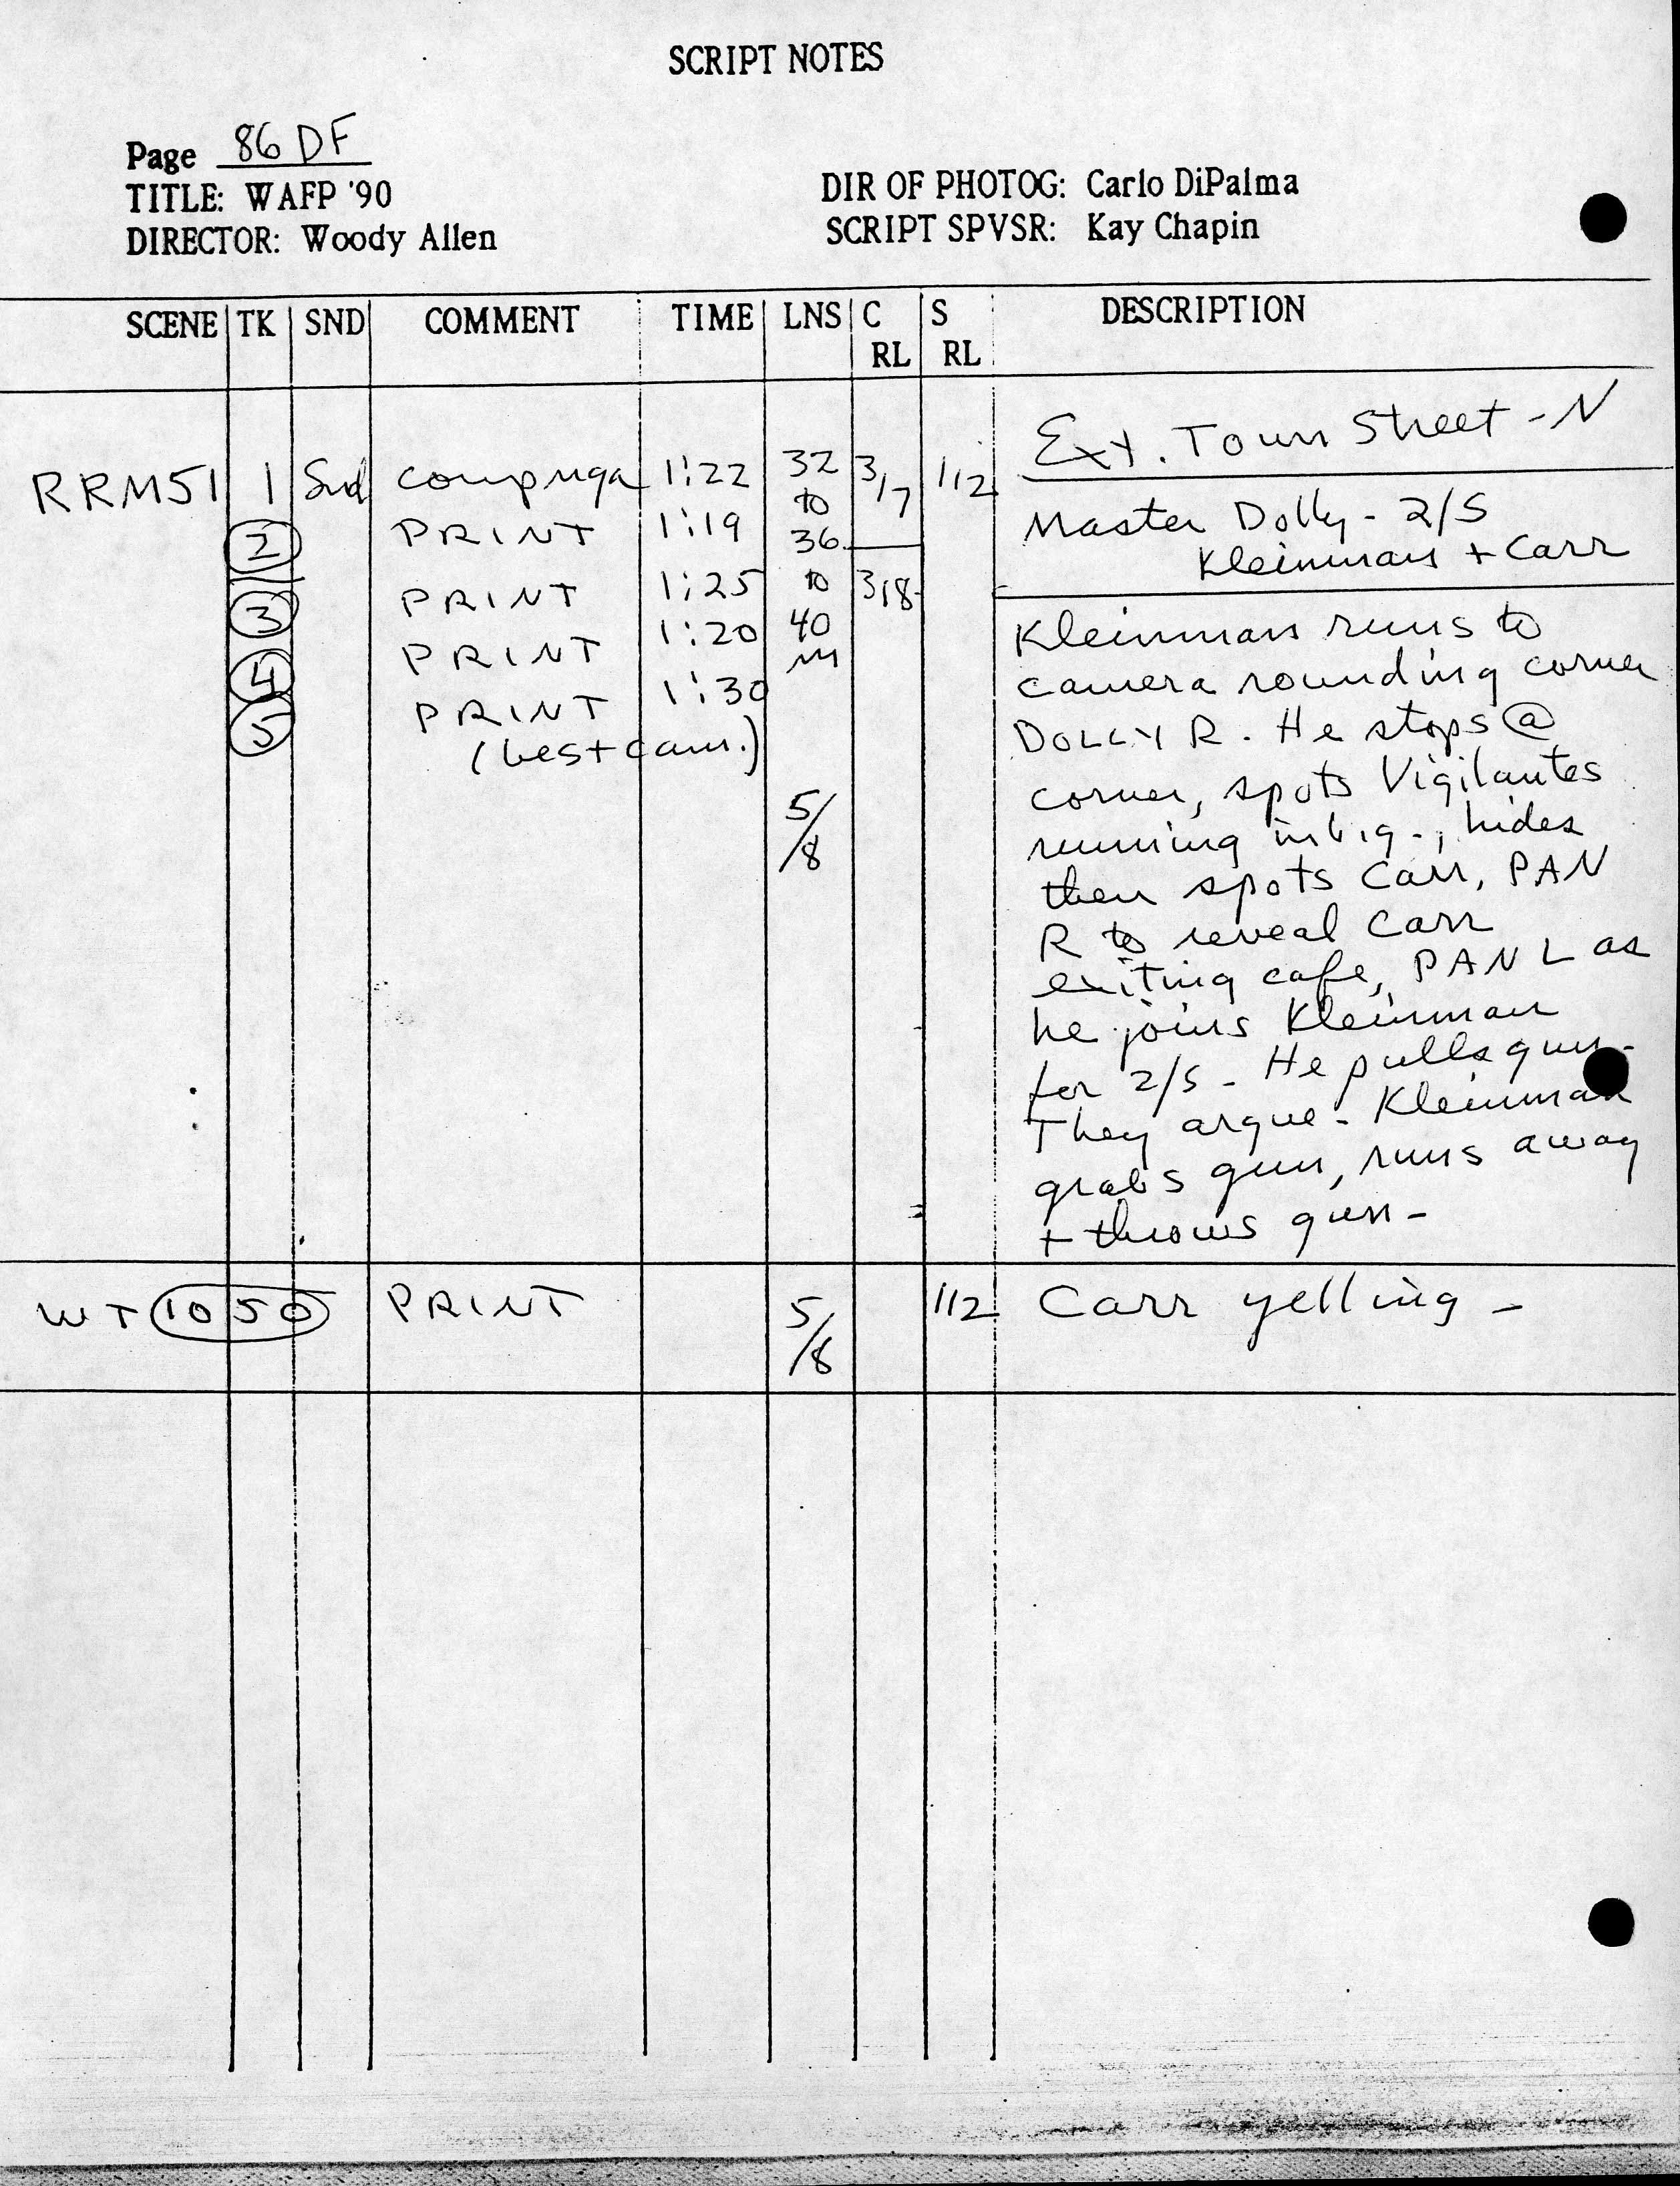 SCRIPT NOTES
Page 86 DF
TITLE: WAFP '90
DIRECTOR: Woody Allen
DIR OF PHOTOG: Carlo DiPalma
SCRIPT SPVSR: Kay Chapin
SCENE TK SND COMMENT TIME LNS C RL S RL DESCRIPTION
Ext. Town Street - N
RRM51 1 Snd comp nga 1:22 32 3/7 1/12
to
2 PRINT 1:19 36
Master Dolly - 2/S
Kleinman + Carr
3 PRINT 1:25 to 3/8
4 PRINT 1:20 40
m
5 PRINT 1:30
(best cam.)
5/8
Kleinman runs to
camera rounding corner
DOLLY R. He stops @
corner, spots Vigilantes
running in b.g., hides
then spots Carr, PAN
R to reveal Carr
exiting cafe, PAN L as
he joins Kleinman
for 2/S - He pulls gun -
They argue - Kleinman
grabs gun, runs away
+ throws gun -
WT 1050 PRINT 5/8 1/12 Carr yelling -